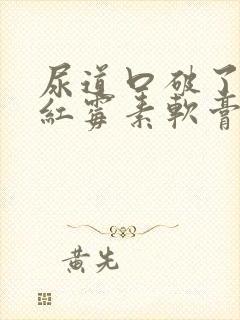 尿道口破了
紅霉素軟膏
黃先